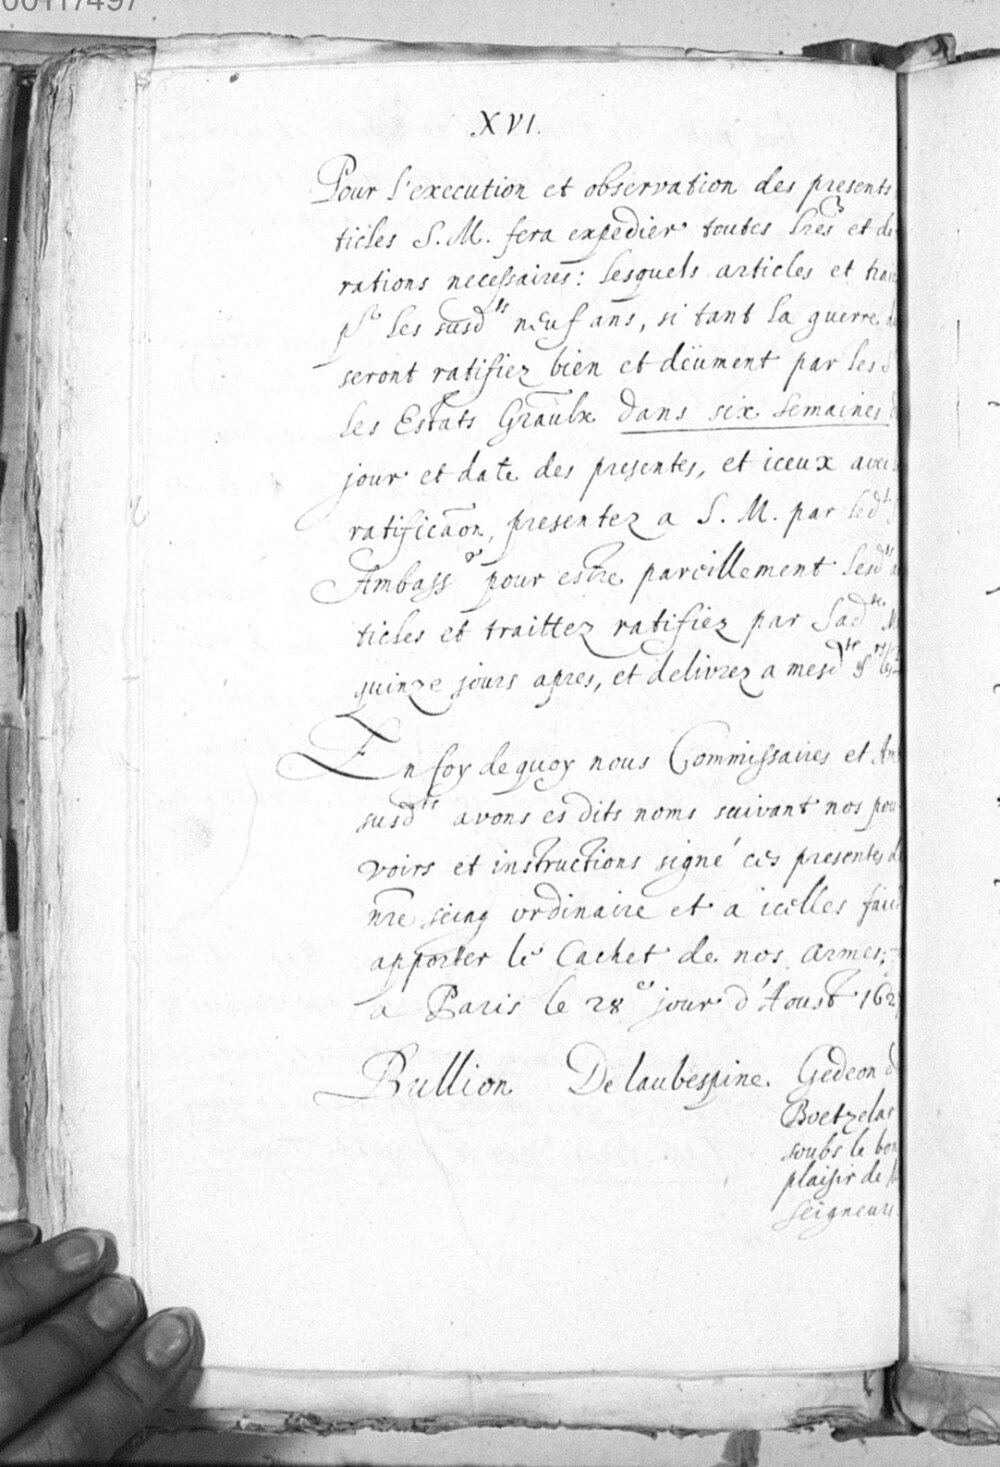 00117497
XVI.
Pour l'execution et observation des presents
ticles S. M. fera expedier toutes lres et de
rations necessaires: lesquels articles et trai
pr les susdts neuf ans, si tant la guerre du
seront ratifiez bien et deüment par les s
les Estats Graulx dans six semaines d
jour et date des presentes, et iceux avec
ratificaon, presentez a S. M. par led
Ambassr pour estre pareillement lesdts a
ticles et traittez ratifiez par Sadte M
quinze jours apres, et delivrez a mesdts
En foy de quoy nous Commissaires et Am
susdts avons es dits noms suivant nos pou
voirs et instructions signé ces presentes de
nre seing ordinaire et a icelles fait
apporter le Cachet de nos armes;
a Paris le 28e jour d'Aoust 162
Bullion De laubespine. Gedeon d
Boetzelar
soubs le bon
plaisir de
seigneurs.